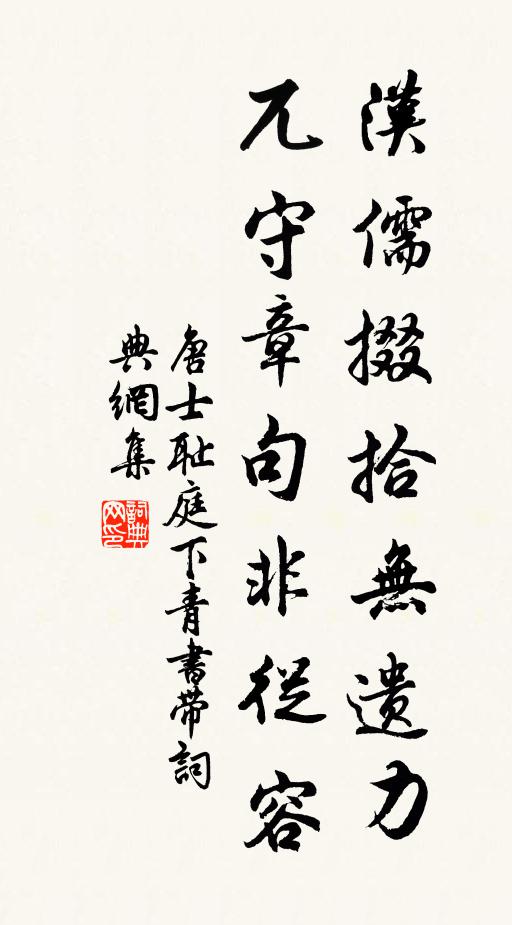 漢儒掇拾無遺力
兀守章句非從容
唐士耻庭下青書帶詞
典網集
詞典网印